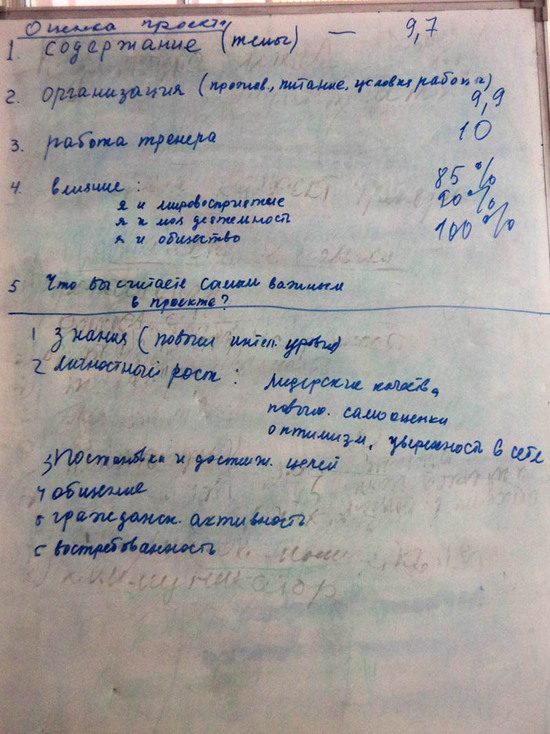 Оценка проекту
1. содержание (темы) — 9,7
2. организация (прожив., питание, условия работы)
9,9
3. работа тренера 10
4. влияние :
85 %
я и мировосприятие 90 %
я и моя деятельность
я и общество 100 %
5 Что вы считаете самым важным
в проекте?
1 Знания (повыш интел. уровня)
2 Личностный рост : лидерские качества,
повыш. самооценки
оптимизм, уверенность в себе
3 Постановка и достиж. целей
4 общение
5 гражданск. активность
6 востребованность
коммуникатор